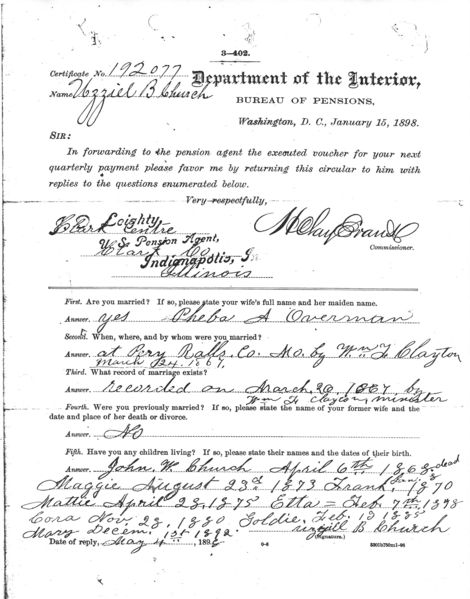 3—402.
Certificate No. 192077
Department of the Interior,
Name Uzziel B Church
BUREAU OF PENSIONS,
Washington, D. C., January 15, 1898.
SIR:
In forwarding to the pension agent the executed voucher for your next
quarterly payment please favor me by returning this circular to him with
replies to the questions enumerated below.
Very respectfully,
Leighty
Clark Centre
U. S. Pension Agent,
Clark Co
Indianapolis,
Illinois
H Clay Evans
Commissioner.
First. Are you married? If so, please state your wife's full name and her maiden name.
Answer. yes Pheba A Overman
Second. When, where, and by whom were you married?
Answer. at Pery Ralls. Co. Mo. by Wm F Clayton
March 24. 1867.
Third. What record of marriage exists?
Answer. recorded on March. 26, 1867 by
Wm F Clayton, minister
Fourth. Were you previously married? If so, please state the name of your former wife and the
date and place of her death or divorce.
Answer. No
Fifth. Have you any children living? If so, please state their names and the dates of their birth.
Answer. John W. Church April 6th 1868 dead
Maggie August 23d 1873 Frank 1870
Mattie April 28, 1875 Etta = Feb. 7th
Cora Nov. 28, 1880 Goldie, Feb. 13
Mary Decem. 1st 1892. Uzziel B Church
(Signature.)
Date of reply, May 4 189
0-8